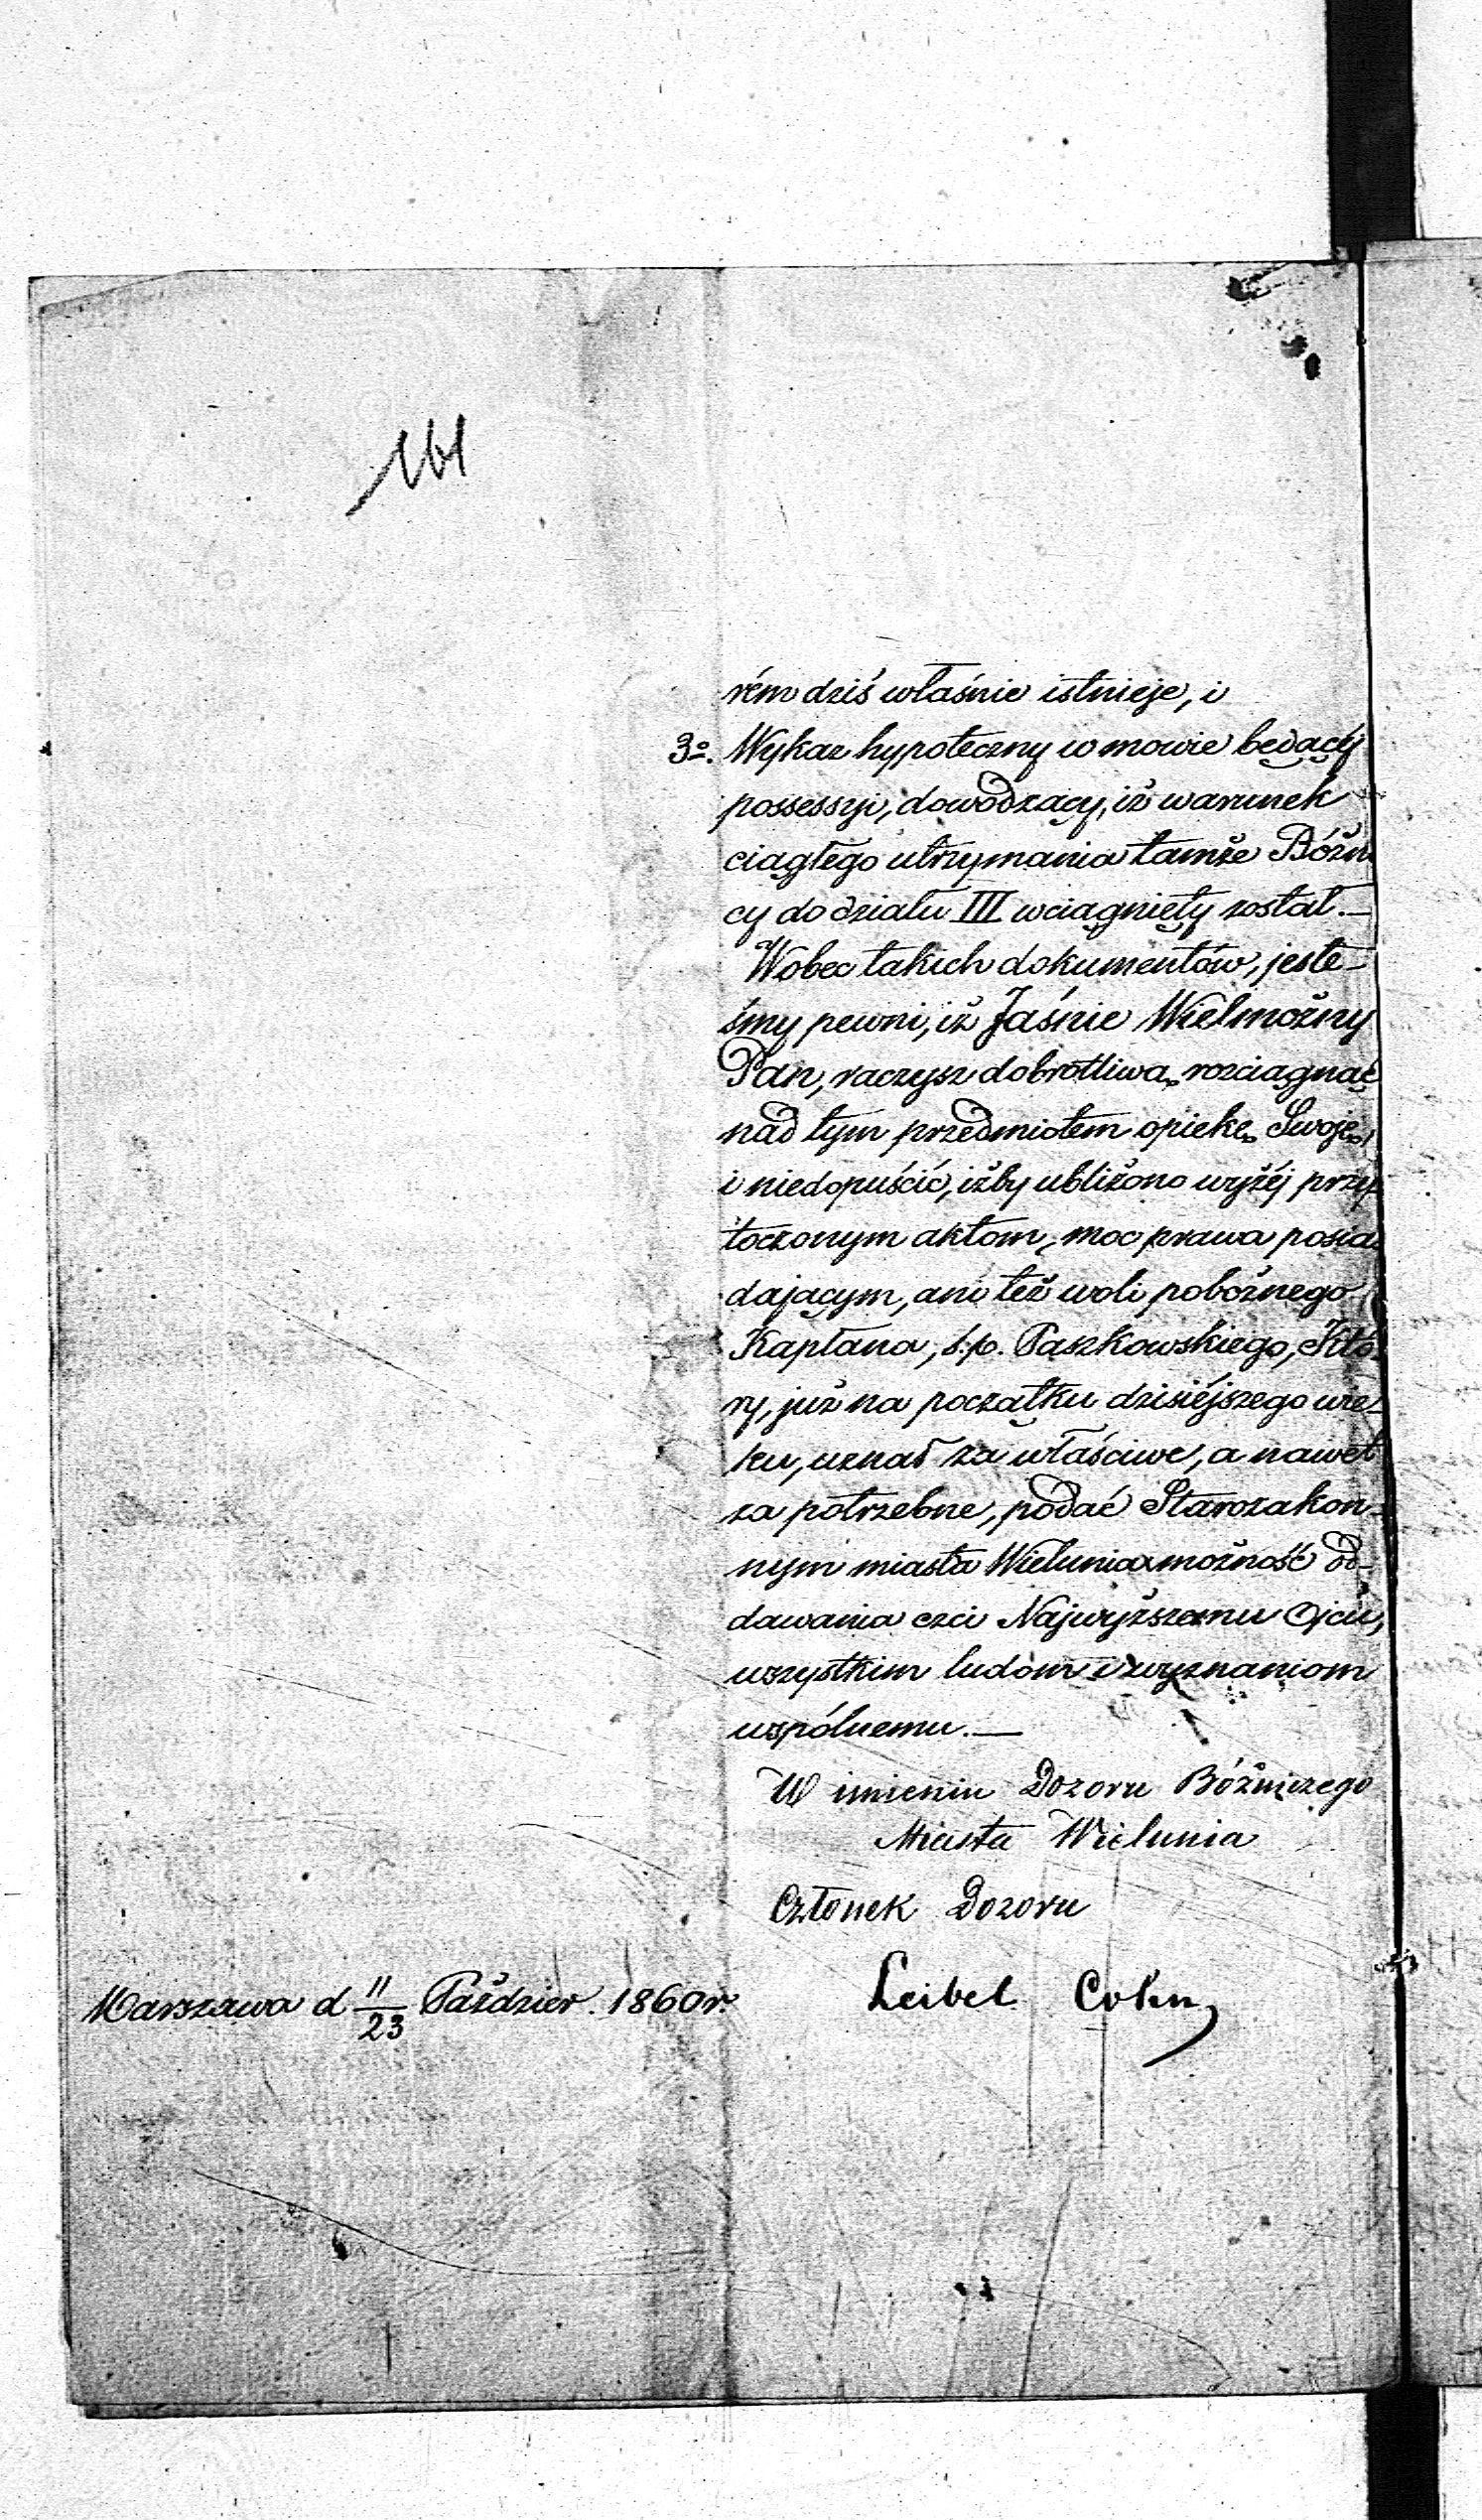 161
rém dziś właśnie istnieje, i
3o. Wykaz hypoteczny w mowie będącéj
possessyi, dowodzący, iż warunek
ciągłego utrzymania tamże Bóżni
cy do działu III wciągnięty został.—
Wobec takich dokumentów, jeste-
śmy pewni, iż Jaśnie Wielmożny
Pan, raczysz dobrotliwą rozciągnąć
nad tym przedmiotem opiekę Swoję,
i niedopuścić, iżby ubliżono wyżéj przy-
toczonym aktom, moc prawa posia-
dającym, ani też woli pobożnego
Kapłana, ś.p. Paszkowskiego, Któ-
ry, już na początku dzisiéjszego wie-
ku, uznał za właściwe, a nawet
za potrzebne, podać Starozakon-
nym miasta Wielunia możność od-
dawania czci Najwyższemu Ojcu,
wszystkim ludom i wyznaniom
wspólnemu.—
W imieniu Dozoru Bóżniczego
Miasta Wielunia
Członek Dozoru
Leibel Cohn
Warszawa d 11/23 Paździer. 1860 r.